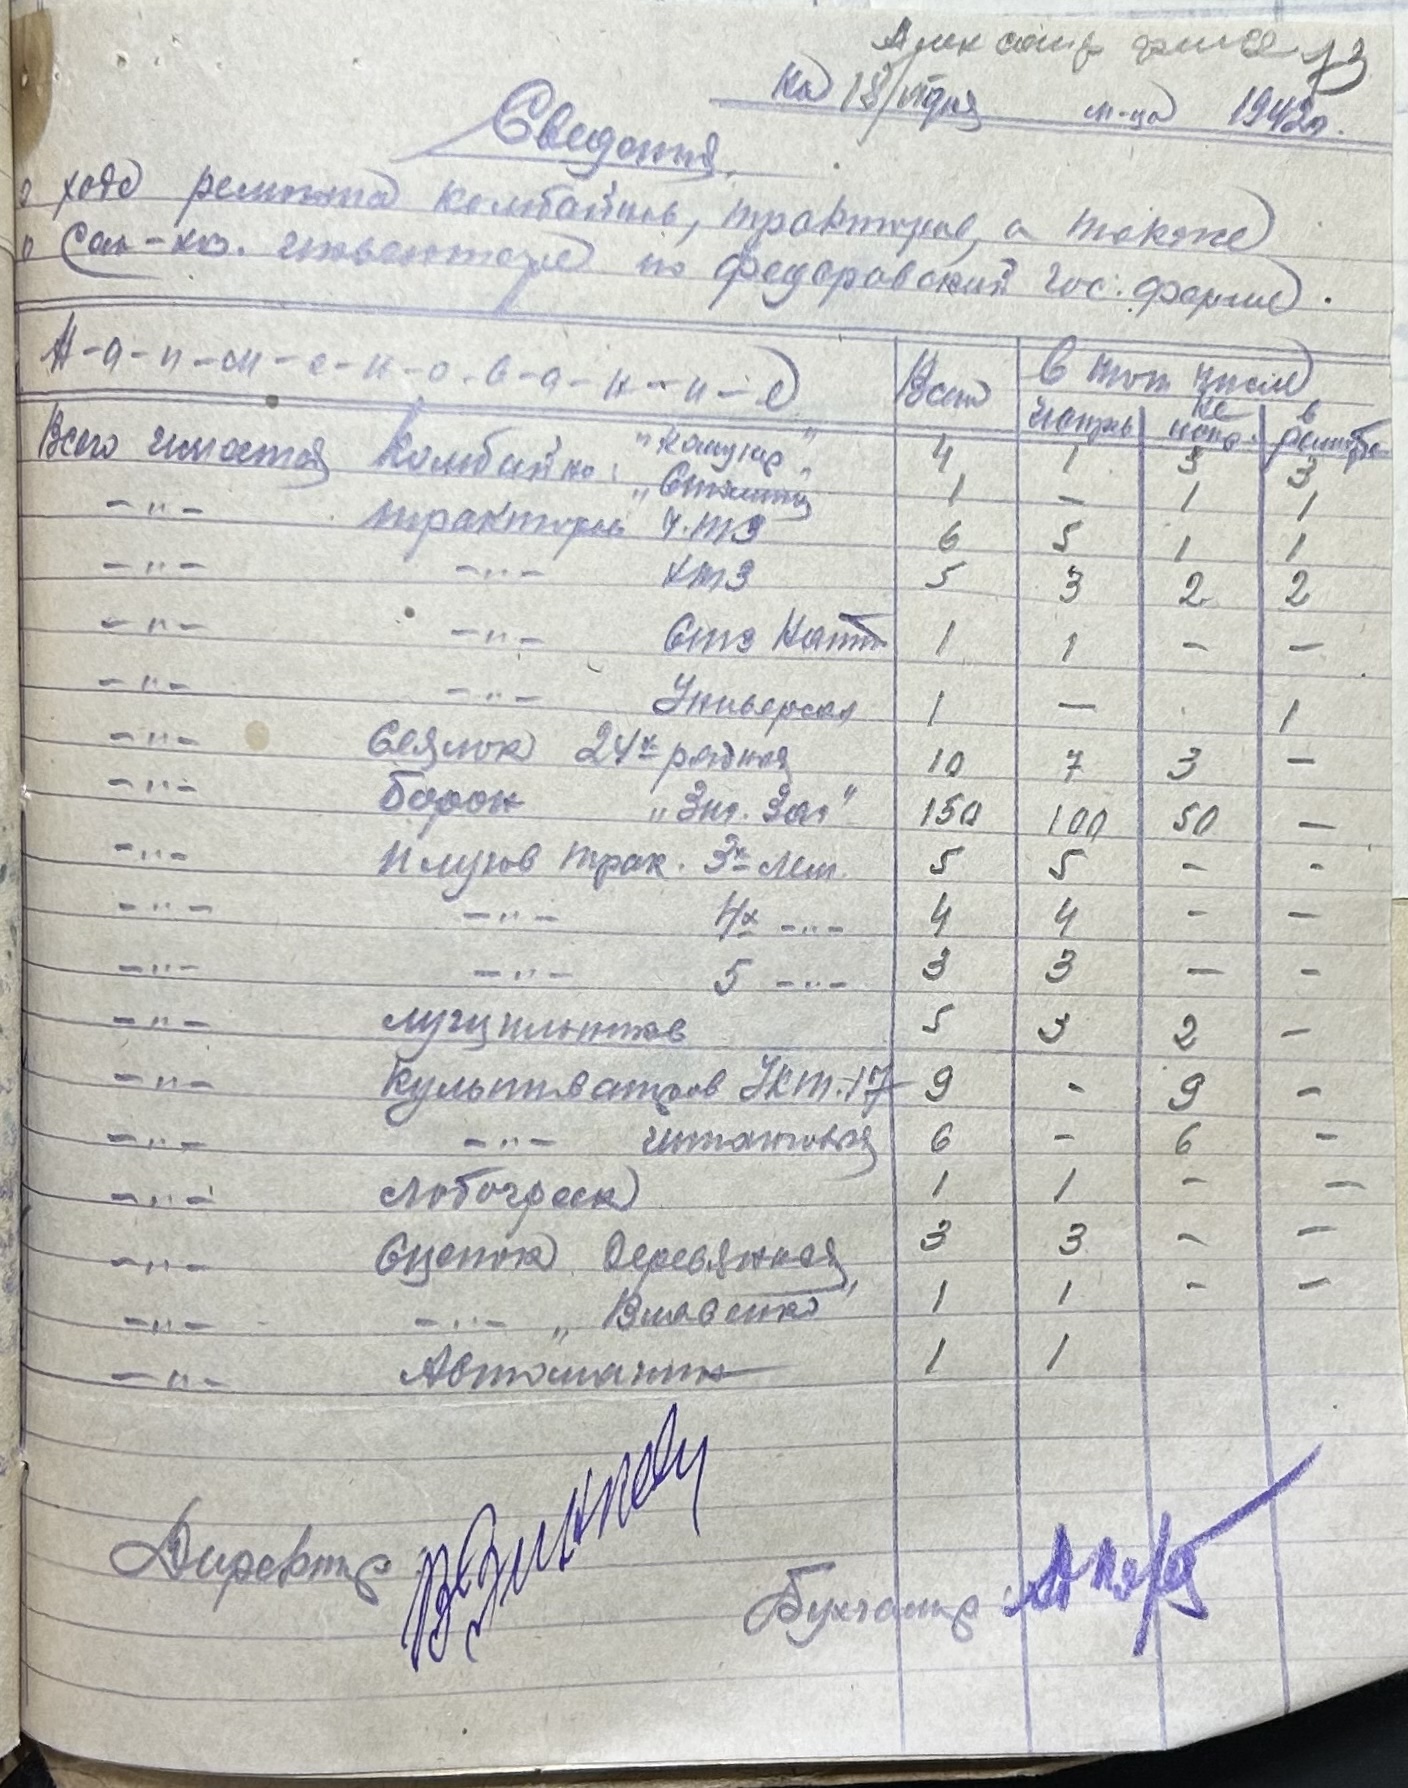 13
На 18/ м-ца 1942г.
Сведения
о ходе ремонта комбайнов, тракторов, а также
о Сель-хоз. инвентаре по Федоровский гос. ферме.
Н-а-и-м-е-н-о-в-а-н-и-е Всего В том числе
исправ не испр. в ремонте
Всего имеется Комбайнов: "Коммунар" 4 1 3 3
"Сталинец" 1 - 1 1
-"- тракторов Ч.ТЗ 6 5 1 1
-"- -"- ХТЗ 5 3 2 2
-"- -"- СТЗ Натти 1 1 - -
-"- -"- Универсал 1 - 1
-"- Сеялок 24х рядная 10 7 3 -
-"- Борон "Зиг. Заг" 150 100 50 -
-"- Плугов трак. 3х лем. 5 5 - -
-"- -"- 4х -"- 4 4 - -
-"- -"- 5 -"- 3 3 - -
-"- лущильников 5 3 2 -
-"- Культиваторов УКТ-17 9 - 9 -
-"- -"- штанговая 6 - 6 -
-"- Лобогреек 1 1 - -
-"- Сцепок Деревянная 3 3 - -
-"- -"- 1 1 - -
-"- Автомашин 1 1
Директор
Бухгалтер